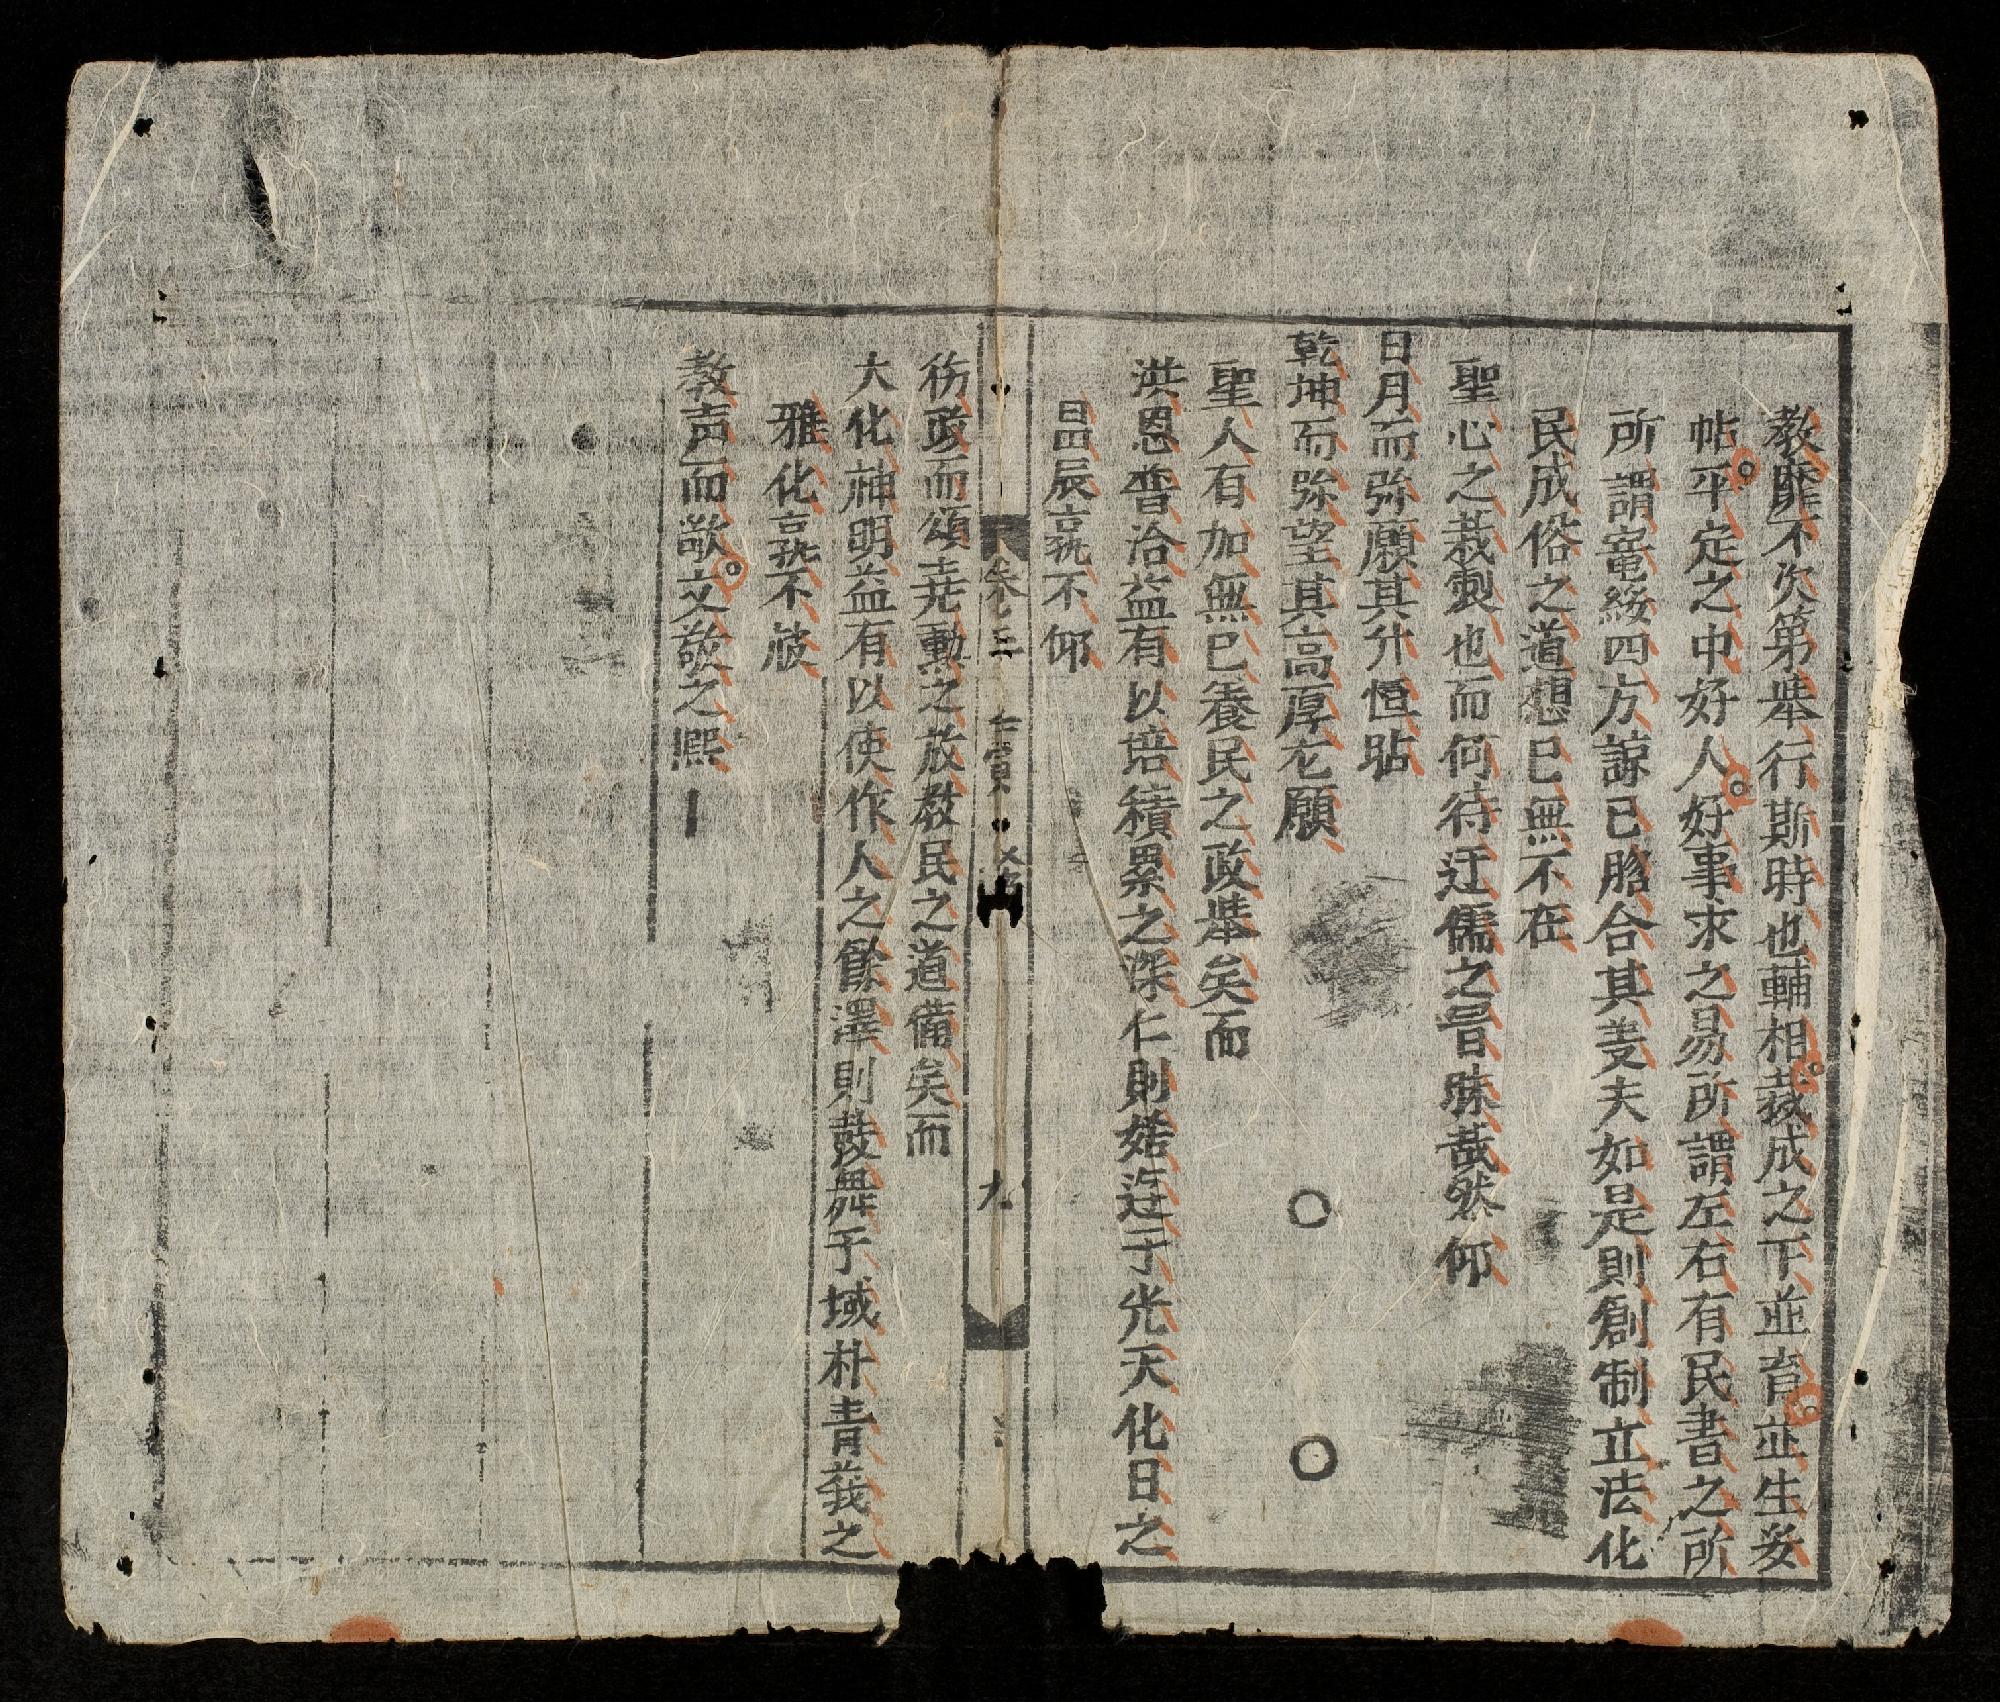 教靡不次第舉行斯時也輔相裁成之下並育並生妥
帖平定之中好人好事求之易所謂左右有民書之所
所謂寵綏四方諒已脗合其美夫如是則創制立法化
民成俗之道想已無不在
聖心之裁製也而何待迂儒之晉陳哉然仰
日月而弥願其升恒跕
乾坤而弥望其高厚尤願
聖人有加無已養民之政舉矣而
洪恩普洽益有以培積累之深仁則熙遊于光天化日之
昌辰孰不仰
仿政而頌尭勳之放教民之道備矣而
大化神明益有以使作人之餘澤則鼓舞于棫朴青莪之
雅化孰不底
教声而歌文敬之熙
卷三
九